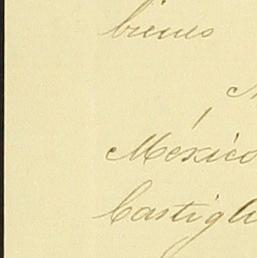 bienes
México
Castigli